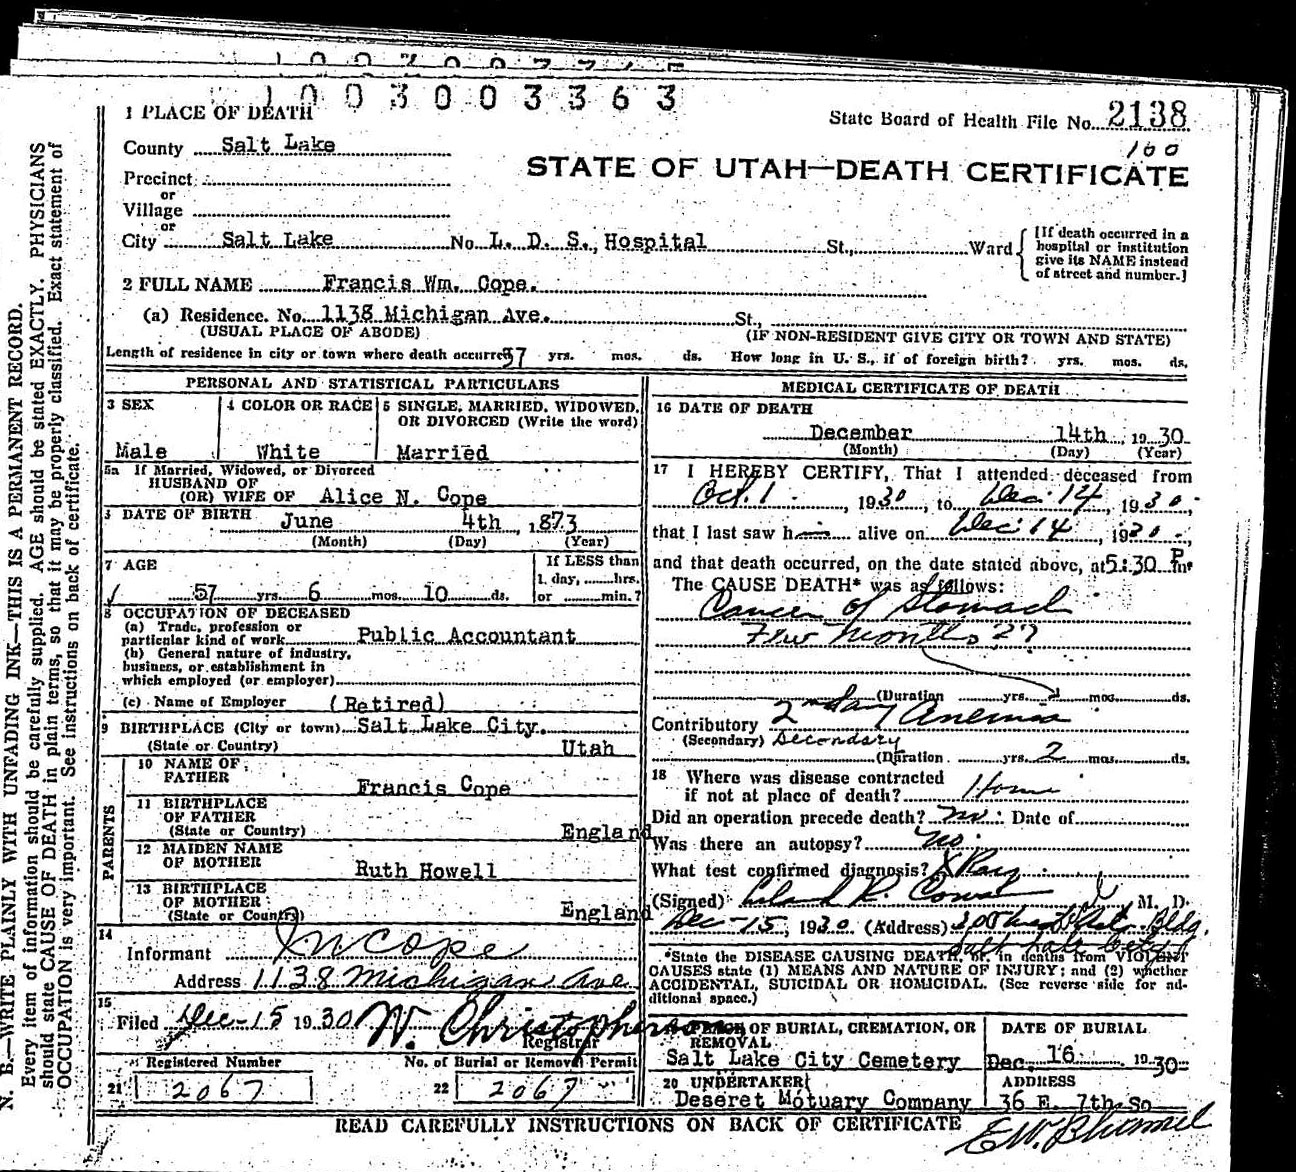 1003003363
1 PLACE OF DEATH
State Board of Health File No. 2138
100
County Salt Lake
STATE OF UTAH—DEATH CERTIFICATE
Precinct
or
Village
or
City Salt Lake No. L. D. S., Hospital St., Ward
[If death occurred in a
hospital or institution
give its NAME instead
of street and number.]
2 FULL NAME Francis Wm. Cope.
(a) Residence. No. 1138 Michigan Ave. St.,
(USUAL PLACE OF ABODE) (IF NON-RESIDENT GIVE CITY OR TOWN AND STATE)
Length of residence in city or town where death occurred 57 yrs. mos. ds. How long in U. S., if of foreign birth? yrs. mos. ds.
PERSONAL AND STATISTICAL PARTICULARS
3 SEX
Male
4 COLOR OR RACE
White
5 SINGLE, MARRIED, WIDOWED,
OR DIVORCED (Write the word)
Married
5a If Married, Widowed, or Divorced
HUSBAND OF
(OR) WIFE OF Alice N. Cope
DATE OF BIRTH June 4th, 1873
(Month) (Day) (Year)
7 AGE
57 yrs. 6 mos. 10 ds.
If LESS than
1 day, hrs.
or min.?
8 OCCUPATION OF DECEASED
(a) Trade, profession or
particular kind of work Public Accountant
(b) General nature of industry,
business, or establishment in
which employed (or employer)
(c) Name of Employer (Retired)
9 BIRTHPLACE (City or town) Salt Lake City.
(State or Country) Utah
PARENTS
10 NAME OF
FATHER
Francis Cope
11 BIRTHPLACE
OF FATHER
(State or Country) England
12 MAIDEN NAME
OF MOTHER
Ruth Howell
13 BIRTHPLACE
OF MOTHER
(State or Country) England
14
Informant Cope
Address 1138 Michigan Ave
15
Filed Dec-15 1930 W. Christopherson
Registrar
Registered Number
21 2067
No. of Burial or Removal Permit
22 2067
MEDICAL CERTIFICATE OF DEATH
16 DATE OF DEATH
December 14th, 1930
(Month) (Day) (Year)
17 I HEREBY CERTIFY, That I attended deceased from
Oct. 1, 1930, to Dec. 14, 1930,
that I last saw h alive on Dec. 14, 1930,
and that death occurred, on the date stated above, at 5:30 P m.
The CAUSE DEATH* was as follows:
Cancer of Stomach
Few months ??
(Duration yrs. mos. ds.
Contributory 2ndary Anemia
(Secondary) Secondary
(Duration yrs. 2 mos. ds.
18 Where was disease contracted
if not at place of death? Home
Did an operation precede death? no. Date of
Was there an autopsy? no.
What test confirmed diagnosis? X Ray
(Signed) Leland R. Cowan M. D.
Dec-15, 1930 (Address) Bldg.
Salt Lake City
*State the DISEASE CAUSING DEATH, or, in deaths from VIOLENT
CAUSES state (1) MEANS AND NATURE OF INJURY; and (2) whether
ACCIDENTAL, SUICIDAL OR HOMICIDAL. (See reverse side for ad-
ditional space.)
PLACE OF BURIAL, CREMATION, OR
REMOVAL
Salt Lake City Cemetery
DATE OF BURIAL
Dec. 16 1930
20 UNDERTAKER
Deseret Motuary Company
ADDRESS
36 E. 7th So
READ CAREFULLY INSTRUCTIONS ON BACK OF CERTIFICATE
N. B.—WRITE PLAINLY WITH UNFADING INK—THIS IS A PERMANENT RECORD.
Every item of information should be carefully supplied. AGE should be stated EXACTLY. PHYSICIANS
should state CAUSE OF DEATH in plain terms, so that it may be properly classified. Exact statement of
OCCUPATION is very important. See instructions on back of certificate.